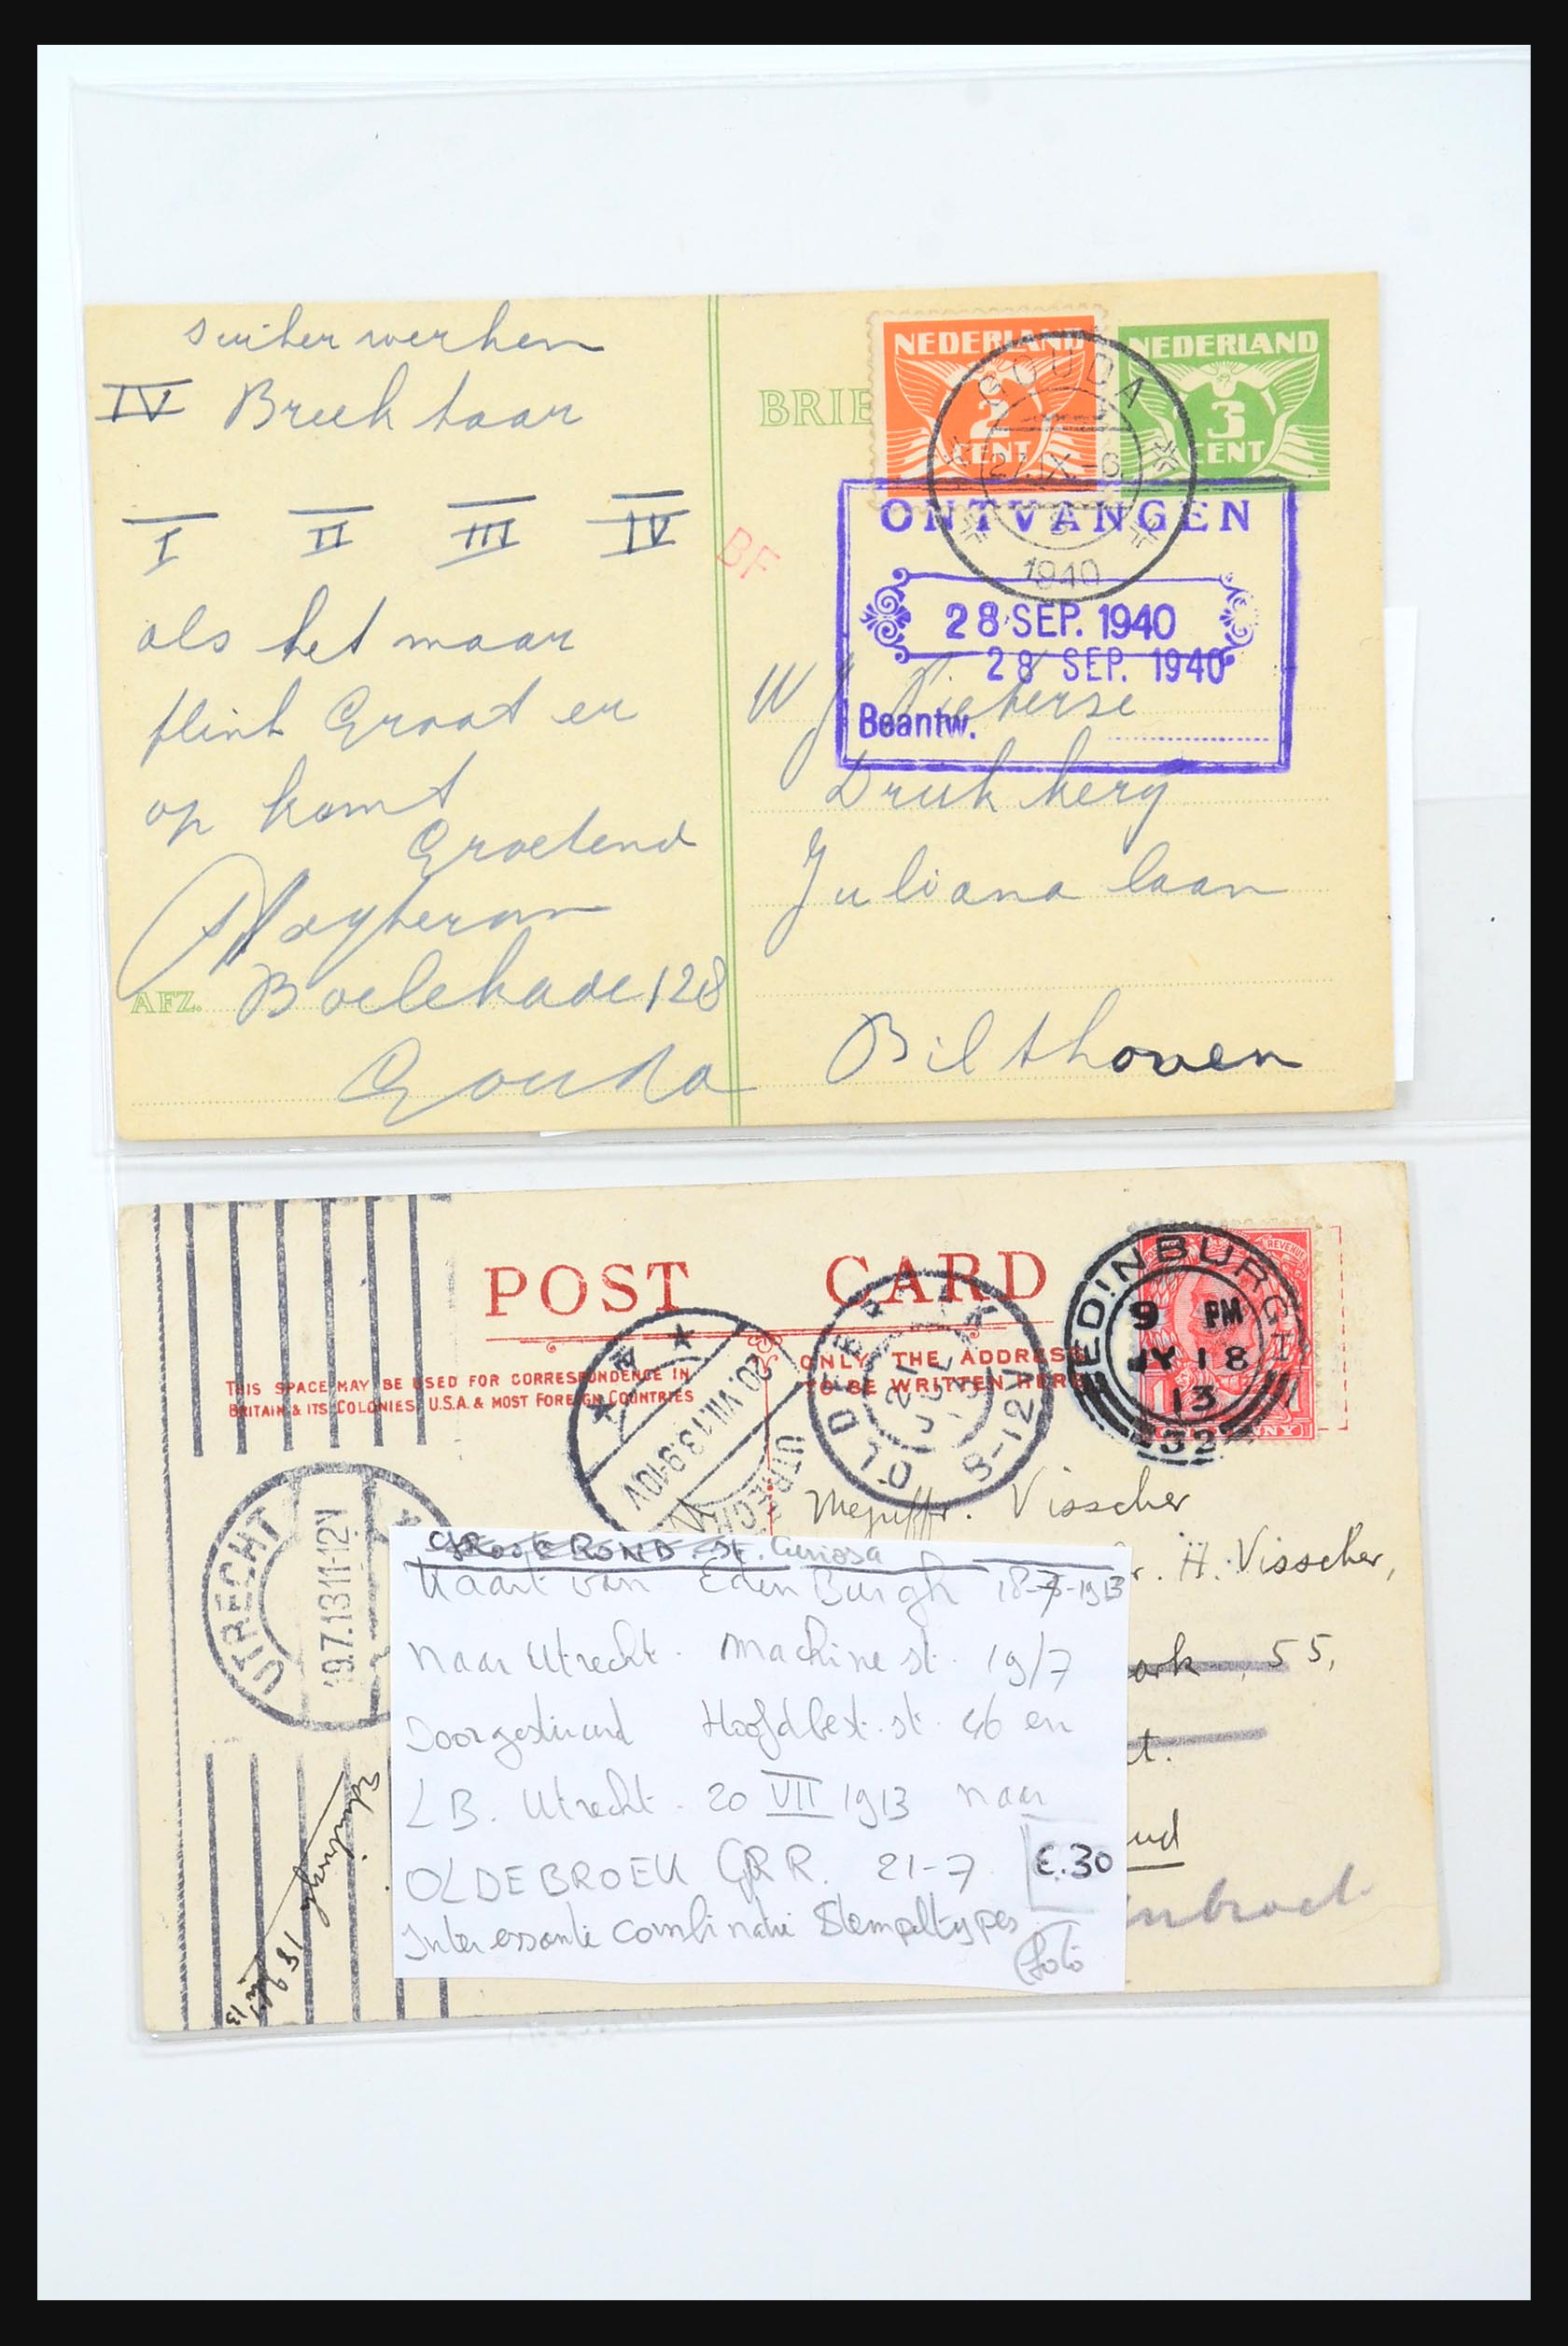 suiker werken
IV Breektaar
I II III IV
als het maar
flink Groot er
op komt
Groetend
AFZ. Boelekade 128
Gouda
BF
BRIE
NEDERLAND
2
CENT
NEDERLAND
3
CENT
GOUDA
27.IX.-6.
1940
ONTVANGEN
28 SEP. 1940
28 SEP. 1940
Beantw.
W J Pieterse
Drukkery
Juliana laan
Bilthoven
POST CARD
THIS SPACE MAY BE USED FOR CORRESPONDENCE IN
BRITAIN & ITS COLONIES, U.S.A. & MOST FOREIGN COUNTRIES
ONLY THE ADDRESS
TO BE WRITTEN HERE
REVENUE
EDINBURGH
9 PM
JY 18
13
32
OLDEBR
21 JUL 13
8-12V
20.VII.13 9-10V
UTRECHT
UTRECHT
19.7.13 11-12V
Mejuffr. Visscher
r. H. Visscher,
ark, 55,
t.
nd
nbroek
Edinburgh
18
13
GROOTE ROND. ST. Curiosa
Kaart van Edenburgh 18-7-1913
naar Utrecht. machine st. 19/7
Doorgestuurd Hoofdbest. st. 46 en
LB. Utrecht. 20 VII 1913 naar
OLDEBROEK GRR. 21-7
€.30
Interessante combinatie Stempeltypes
(foto